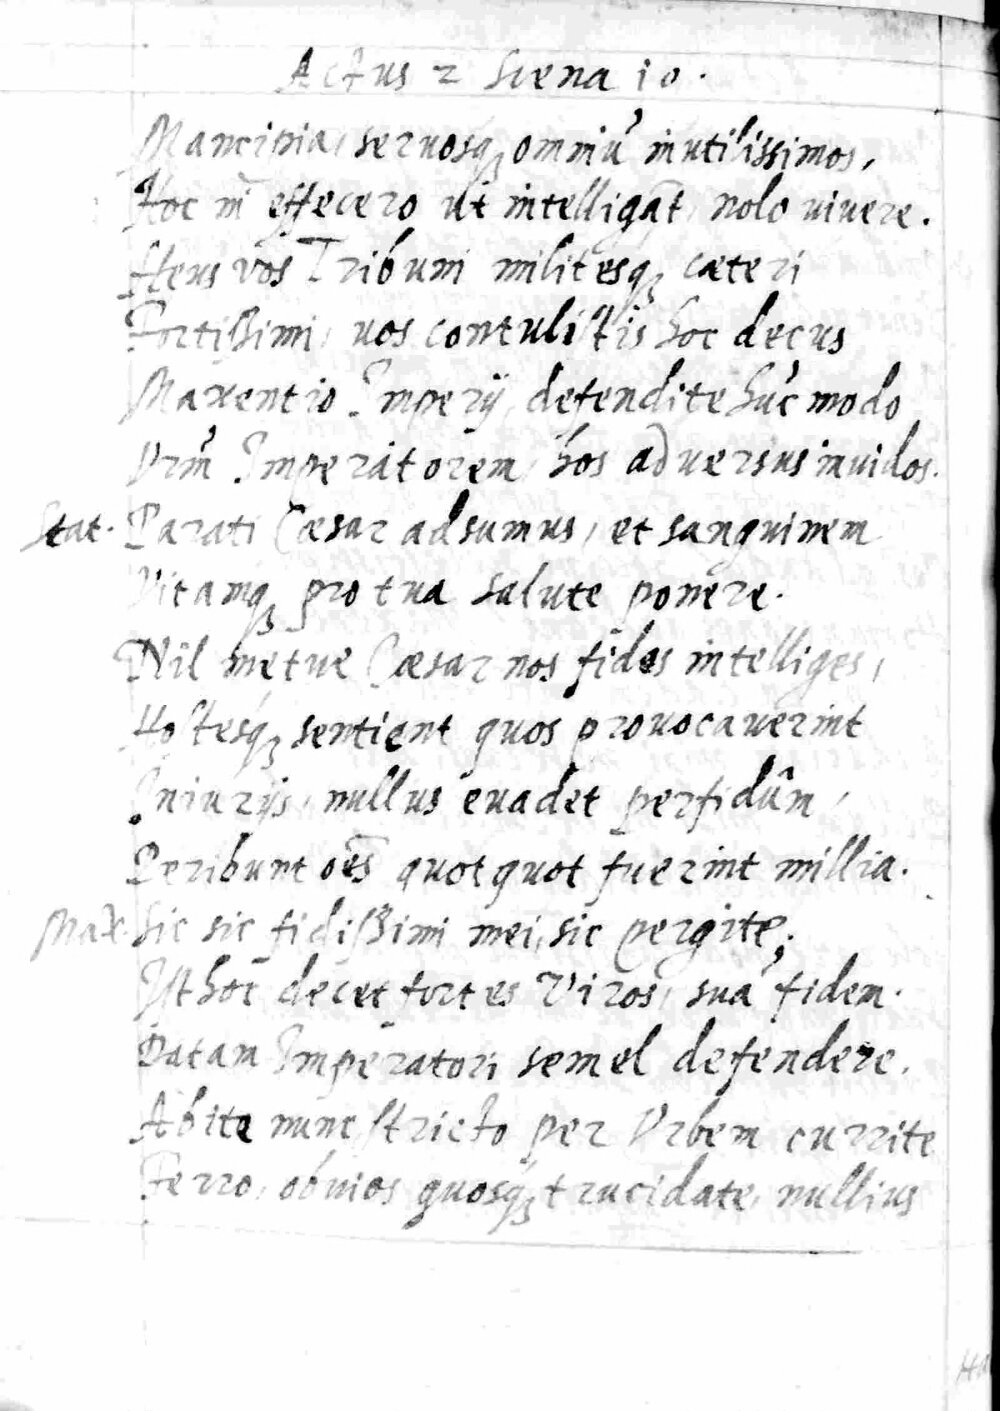 Actus 2 Scena 10.
Mancipia, seruosq; omniũ inutilissimos,
Hoc nĩ effecero ut intelligãt, nolo viuere.
Heus vos Tribuni militesq; cæteri
Fortißimi, uos contulistis hoc decus
Maxentio Imperij, defendite hũc modo
Vrm̃ Imperatorem, hos aduersus inuidos.
Stat. Parati Cæsar adsumus, et sanguinem
Vitamq; pro tua salute ponere.
Nil metue Cæsar nos fidos intelliges,
Hostesq; sentient quos prouocauerint
Iniurijs, nullus euadet perfidûm,
Peribunt oẽs quotquot fuerint millia.
Max. Sic sic fidißimi mei, sic pergite;
Isthoc decet fortes Viros, suã fidem.
Datam Imperatori semel defendere.
Abite nunc stricto per Vrbem currite
Ferro, obuios quosq; trucidate, nullius
Ha